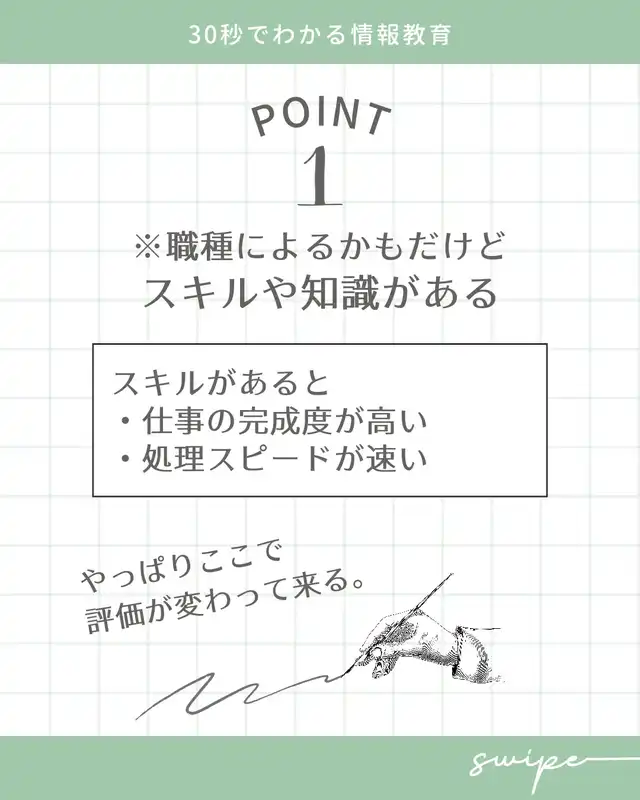 30秒でわかる情報教育
POINT
1
※職種によるかもだけど
スキルや知識がある
スキルがあると
・仕事の完成度が高い
・処理スピードが速い
やっぱりここで
評価が変わって来る。
swipe